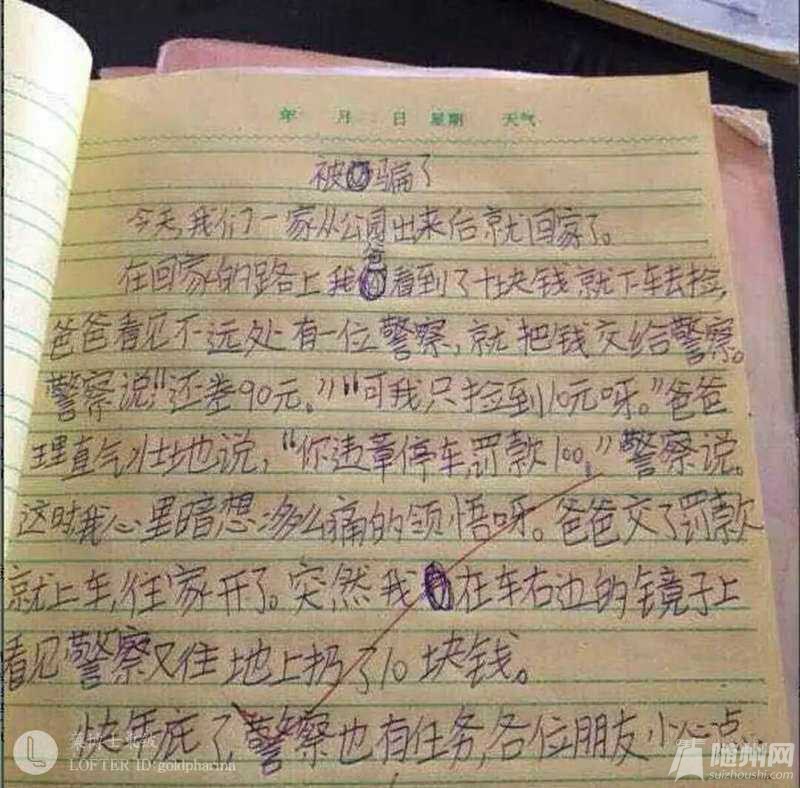 年 月 日 星期 天气
被骗了
今天,我们一家从公园出来后就回家了。
在回家的路上我爸看到了十块钱就下车去捡,
爸爸看见不远处有一位警察,就把钱交给警察。
警察说"还差90元。""可我只捡到10元呀。"爸爸
理直气壮地说,"你违章停车,罚款100。"警察说。
这时我心里暗想:多么痛的领悟呀。爸爸交了罚款
就上车,往家开了。突然我在车右边的镜子上
看见警察又往地上扔了10块钱。
快年底了,警察也有任务,各位朋友小心点
LOFTER ID:goldpharma
随州网
suizhoushi.com